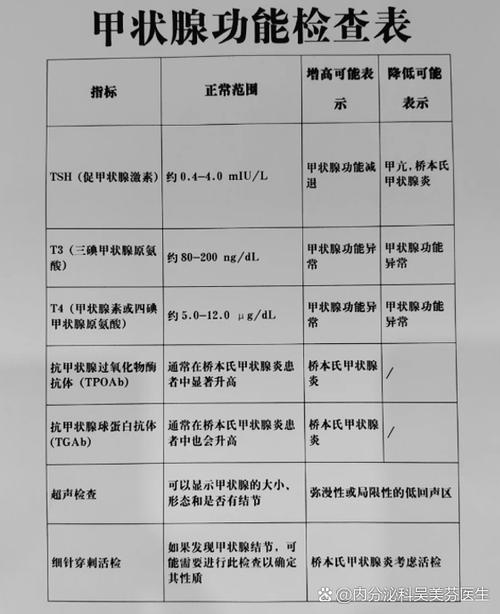 甲状腺功能检查表
指标
正常范围
增高可能表
示
降低可能
表示
TSH（促甲状腺激素）
约 0.4-4.0 mIU/L
甲状腺功能减
退
甲亢，桥本氏
甲状腺炎
T3（三碘甲状腺原氨
酸）
约 80-200 ng/dL
甲状腺功能异
常
甲状腺功能
异常
T4（甲状腺素或四碘
甲状腺原氨酸）
约 5.0-12.0 μg/dL
甲状腺功能异
常
甲状腺功能
异常
抗甲状腺过氧化物酶
抗体（TPOAb）
通常在桥本氏甲状腺炎患
者中显著升高
桥本氏甲状腺
炎
/
抗甲状腺球蛋白抗体
(TGAb)
通常在桥本氏甲状腺炎患
者中也会升高
桥本氏甲状腺
炎
/
超声检查
可以显示甲状腺的大小、
形态和是否有结节
弥漫性或局限性的低回声区
细针穿刺活检
如果发现甲状腺结节，可
能需要进行此检查以确定
其性质
桥本氏甲状腺炎考虑活检
@内分泌科吴美芬医生